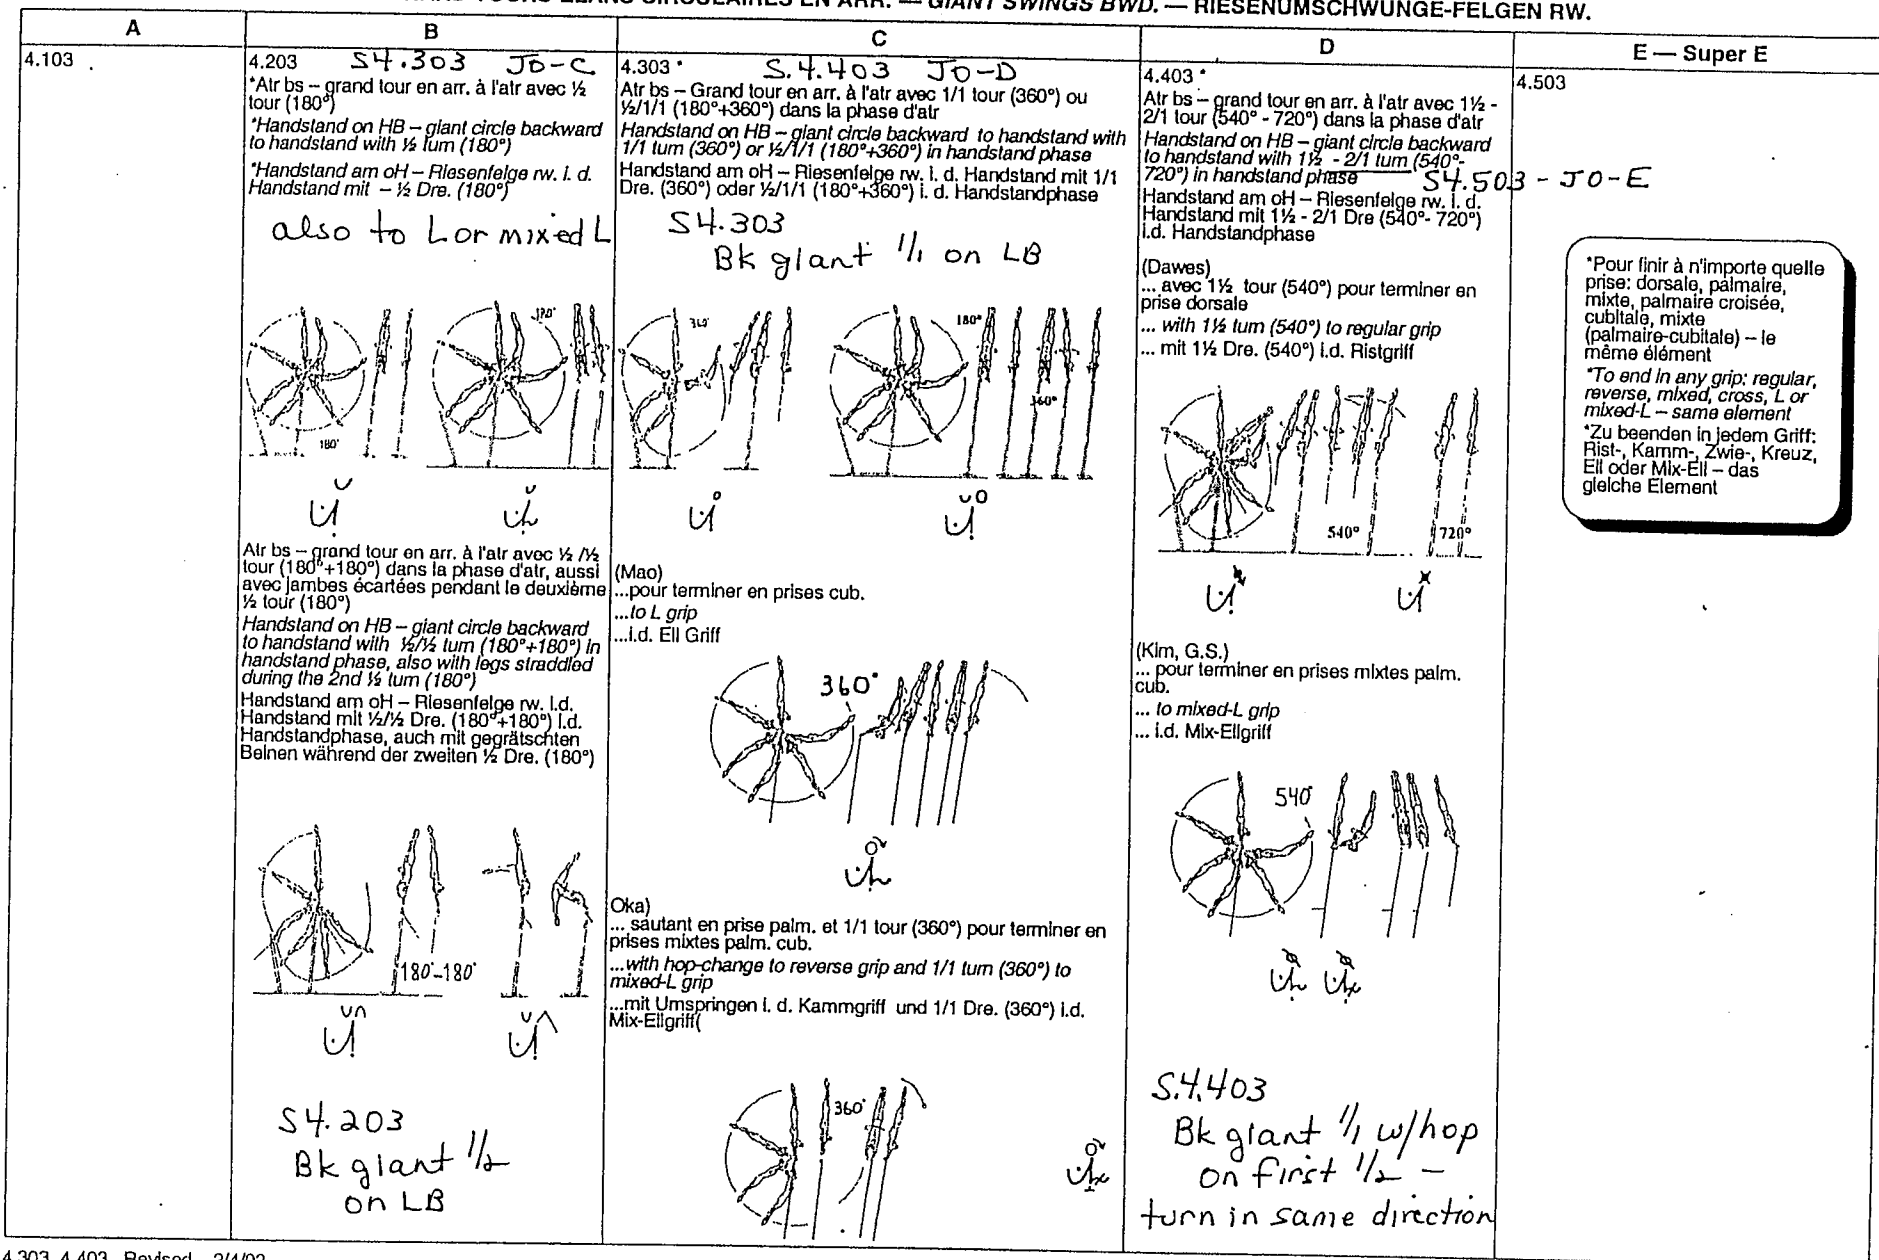 TOURS ÉLANS CIRCULAIRES EN ARR. — GIANT SWINGS BWD. — RIESENUMSCHWÜNGE-FELGEN RW.
A
B
C
D
E — Super E
4.103
4.203 S4.303 JO-C
*Atr bs – grand tour en arr. à l'atr avec ½
tour (180°)
*Handstand on HB – giant circle backward
to handstand with ½ turn (180°)
*Handstand am oH – Riesenfelge rw. i. d.
Handstand mit – ½ Dre. (180°)
also to L or mixed L
180°
180°
Atr bs – grand tour en arr. à l'atr avec ½ /½
tour (180°+180°) dans la phase d'atr, aussi
avec jambes écartées pendant le deuxième
½ tour (180°)
Handstand on HB – giant circle backward
to handstand with ½/½ turn (180°+180°) in
handstand phase, also with legs straddled
during the 2nd ½ turn (180°)
Handstand am oH – Riesenfelge rw. i.d.
Handstand mit ½/½ Dre. (180°+180°) i.d.
Handstandphase, auch mit gegrätschten
Beinen während der zweiten ½ Dre. (180°)
180°-180°
S4.203
Bk giant 1/2
on LB
4.303 S.4.403 JO-D
Atr bs – Grand tour en arr. à l'atr avec 1/1 tour (360°) ou
½/1/1 (180°+360°) dans la phase d'atr
Handstand on HB – giant circle backward to handstand with
1/1 turn (360°) or ½/1/1 (180°+360°) in handstand phase
Handstand am oH – Riesenfelge rw. i. d. Handstand mit 1/1
Dre. (360°) oder ½/1/1 (180°+360°) i. d. Handstandphase
S4.303
Bk giant 1/1 on LB
360°
180°
360°
(Mao)
...pour terminer en prises cub.
...to L grip
...i.d. Ell Griff
360°
Oka)
... sautant en prise palm. et 1/1 tour (360°) pour terminer en
prises mixtes palm. cub.
...with hop-change to reverse grip and 1/1 turn (360°) to
mixed-L grip
...mit Umspringen i. d. Kammgriff und 1/1 Dre. (360°) i.d.
Mix-Ellgriff(
360°
4.403
Atr bs – grand tour en arr. à l'atr avec 1½ -
2/1 tour (540° - 720°) dans la phase d'atr
Handstand on HB – giant circle backward
to handstand with 1½ - 2/1 turn (540°-
720°) in handstand phase S4.503 - JO-E
Handstand am oH – Riesenfelge rw. i.d.
Handstand mit 1½ - 2/1 Dre (540°- 720°)
i.d. Handstandphase
(Dawes)
... avec 1½ tour (540°) pour terminer en
prise dorsale
... with 1½ turn (540°) to regular grip
... mit 1½ Dre. (540°) i.d. Ristgriff
540°
720°
(Kim, G.S.)
... pour terminer en prises mixtes palm.
cub.
... to mixed-L grip
... i.d. Mix-Ellgriff
540°
S.4.403
Bk giant 1/1 w/hop
on first 1/2 –
turn in same direction
4.503
*Pour finir à n'importe quelle
prise: dorsale, palmaire,
mixte, palmaire croisée,
cubitale, mixte
(palmaire-cubitale) – le
même élément
*To end in any grip: regular,
reverse, mixed, cross, L or
mixed-L – same element
*Zu beenden in jedem Griff:
Rist-, Kamm-, Zwie-, Kreuz,
Ell oder Mix-Ell – das
gleiche Element
4.303, 4.403 Revised